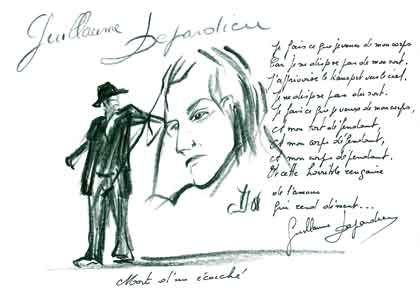 Guillaume Depardieu
Je fais ce que je veux de mon corps
Car je ne dispose pas de mon sort.
J'apprivoise le transept vers le ciel.
Je ne dispose pas du sort.
Je fais ce que je veux de mon corps,
et mon tort défendant,
et mon corps défendant,
et mon corps défendant.
Et cette horrible rengaine
de l'amour
qui rend dément...
Guillaume Depardieu
Mort d'un écorché